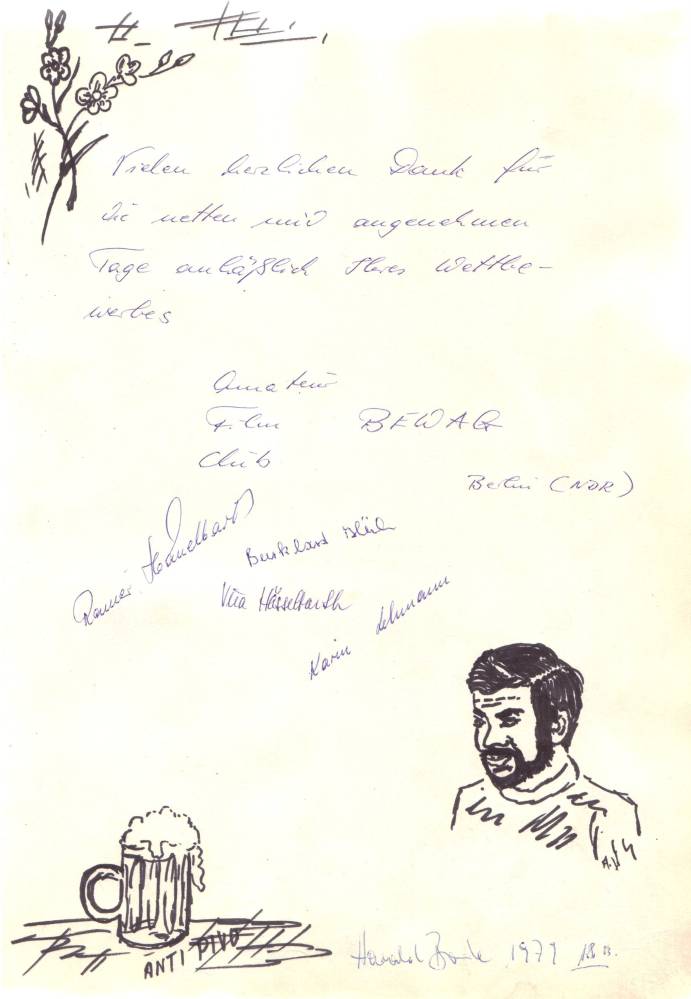 Vielen herzlichen Dank für
die netten und angenehmen
Tage anläßlich Ihres Wettbe-
werbes
Amateur
Film BEWAG
Club
Berlin (NDR)
Rainer
Burkhard
Hässelbarth
Karin Lehmann
ANTI PIVO
Harald 1979